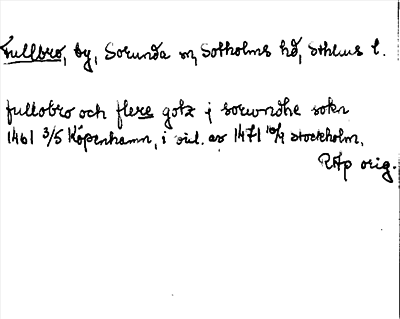 Fullbro, by, Sorunda sn, Sotholms hd, Sthlms l.
fullobro och flere gotz j sorwndhe sokn
1461 3/5 Köpenhamn, i vid. av 1471 10/9 Stockholm,
RAp orig.